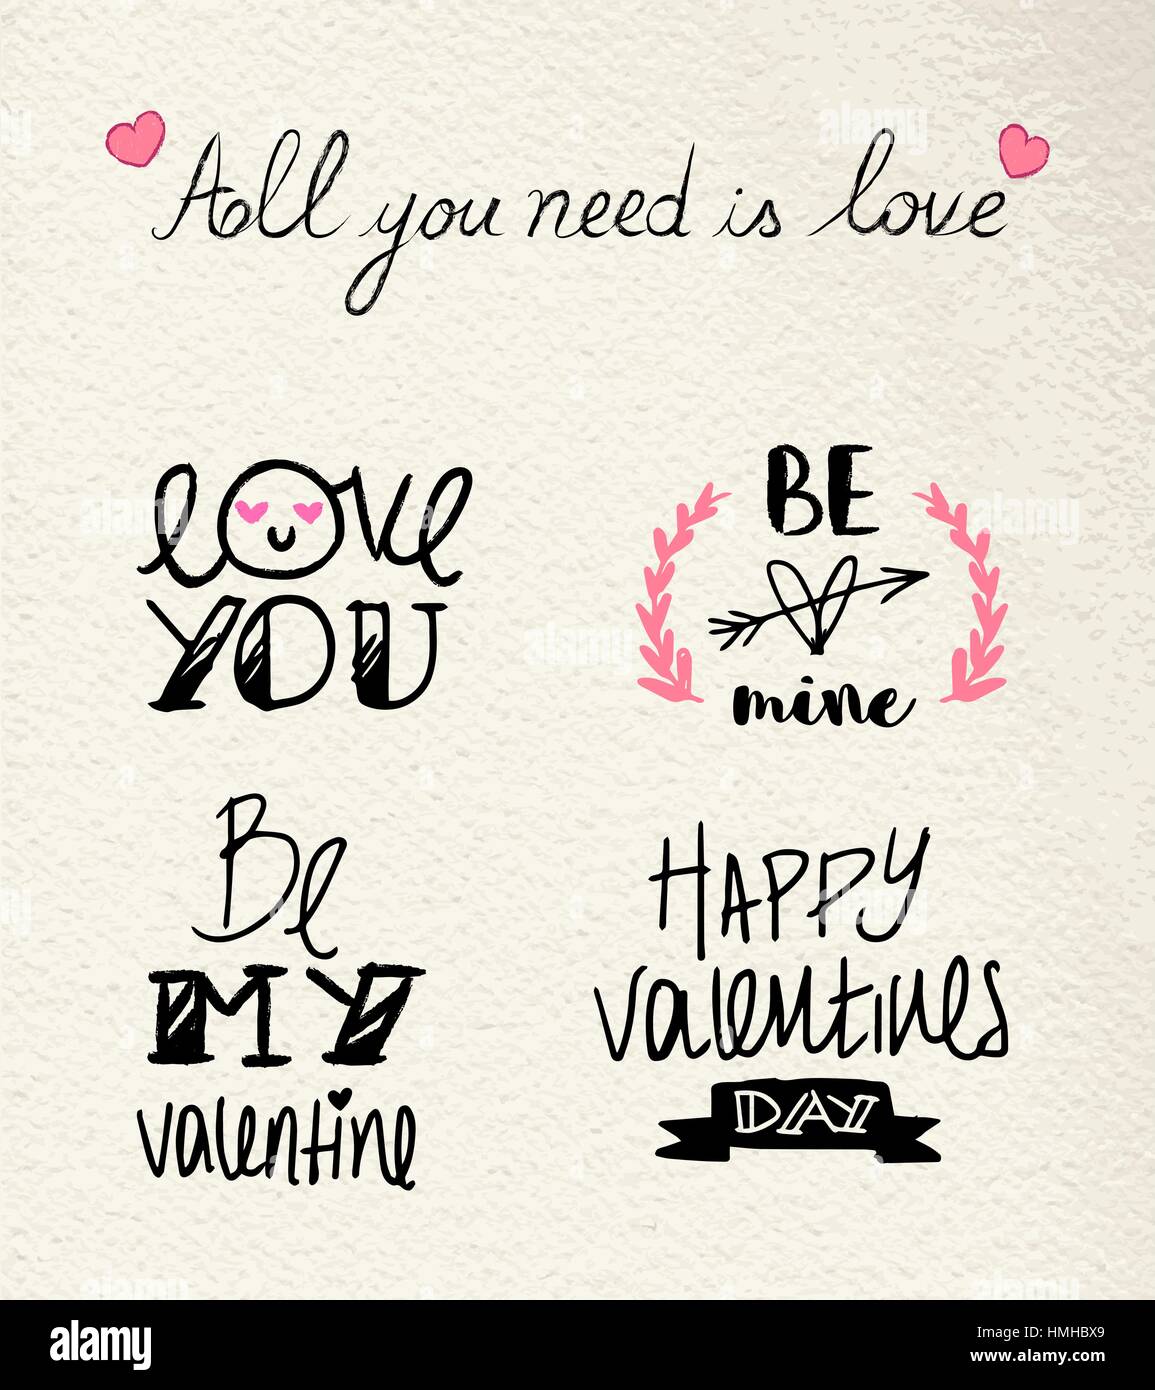 All you need is love
love
YOU
BE
mine
Be
MY
valentine
HAPPY
valentines
DAY
alamy
Image ID: HMHBX9
www.alamy.com